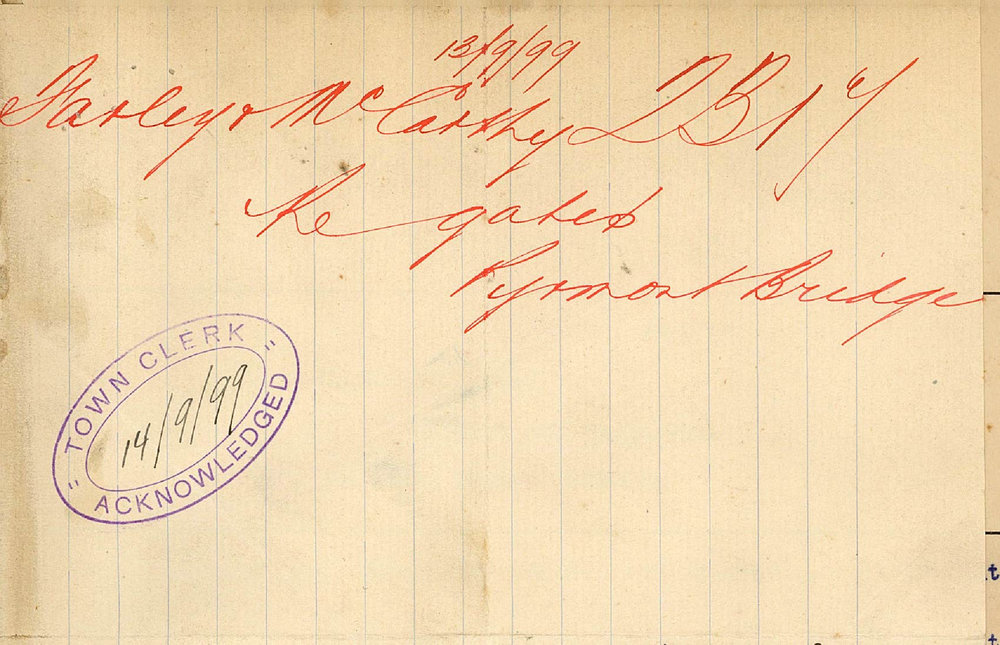 13/9/99
Farley & McCarthy
Re gates
Pyrmont Bridge
" TOWN CLERK "
14/9/99
ACKNOWLEDGED